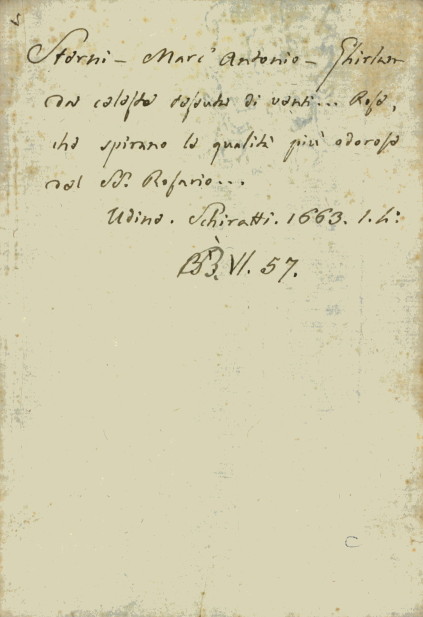 Sterni - Marc' Antonio - Ghirlan
da celeste tessuta di venti... Rose,
che spirano le qualità più odorose
del SS. Rosario...
Udine. Schiratti. 1663. 1. 4:
BB. VI. 57.